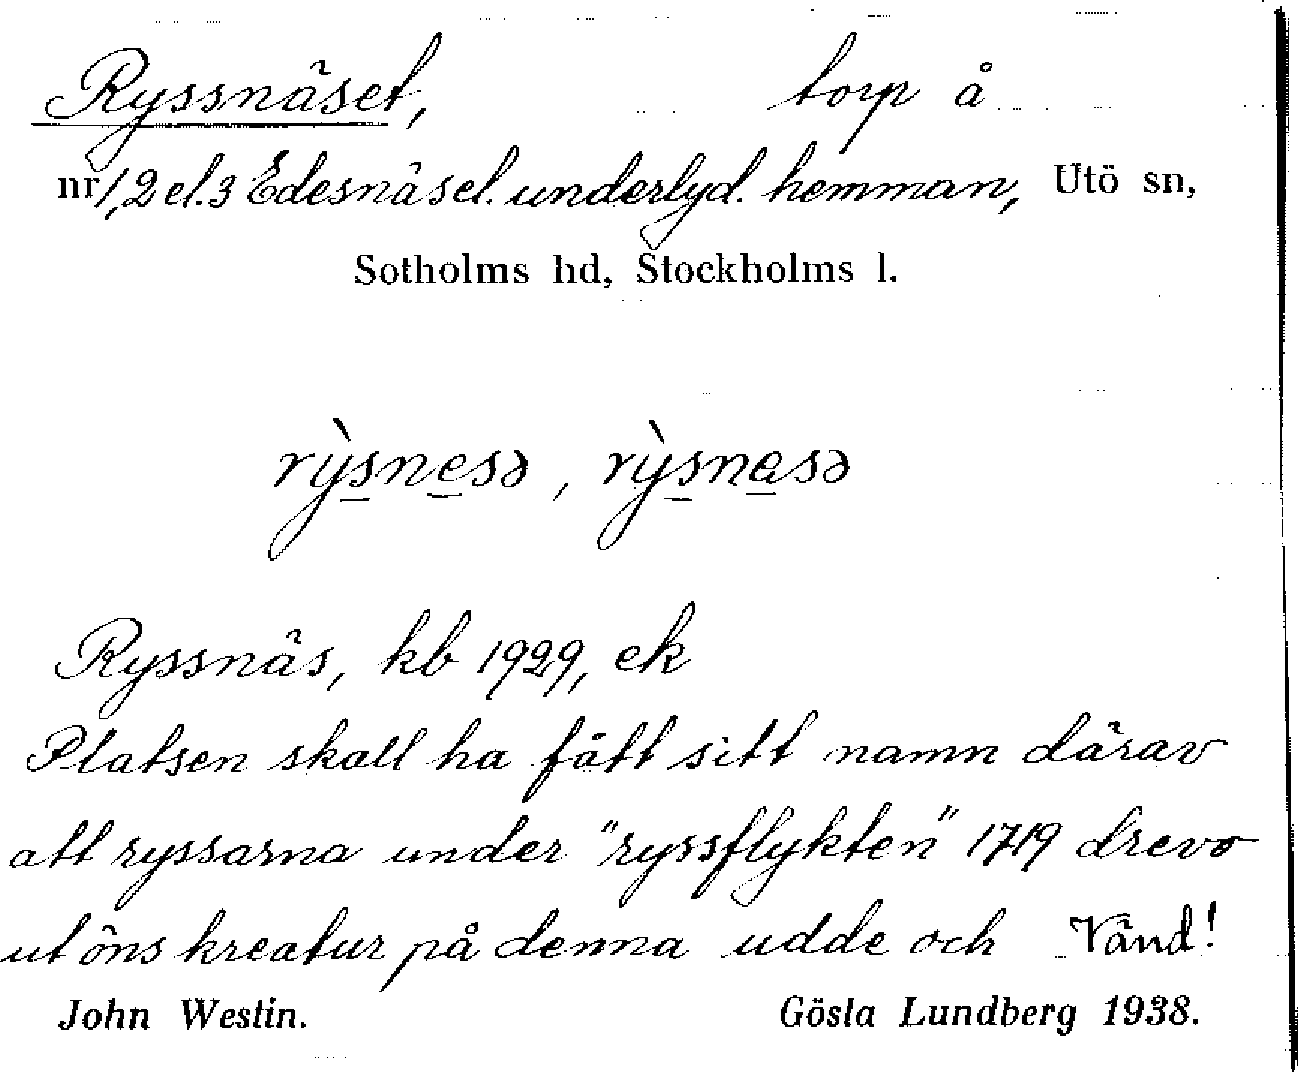 Ryssnäset, torp å
nr 1, 2 el. 3 Edesnäset underlyd. hemman, Utö sn,
Sotholms hd, Stockholms l.
rỳsnesə, rỳsnasə
Ryssnäs, kb 1929, ek
Platsen skall ha fått sitt namn därav
att ryssarna under "ryssflykten" 1719 drevo
ut öns kreatur på denna udde och Vänd!
John Westin. Gösta Lundberg 1938.